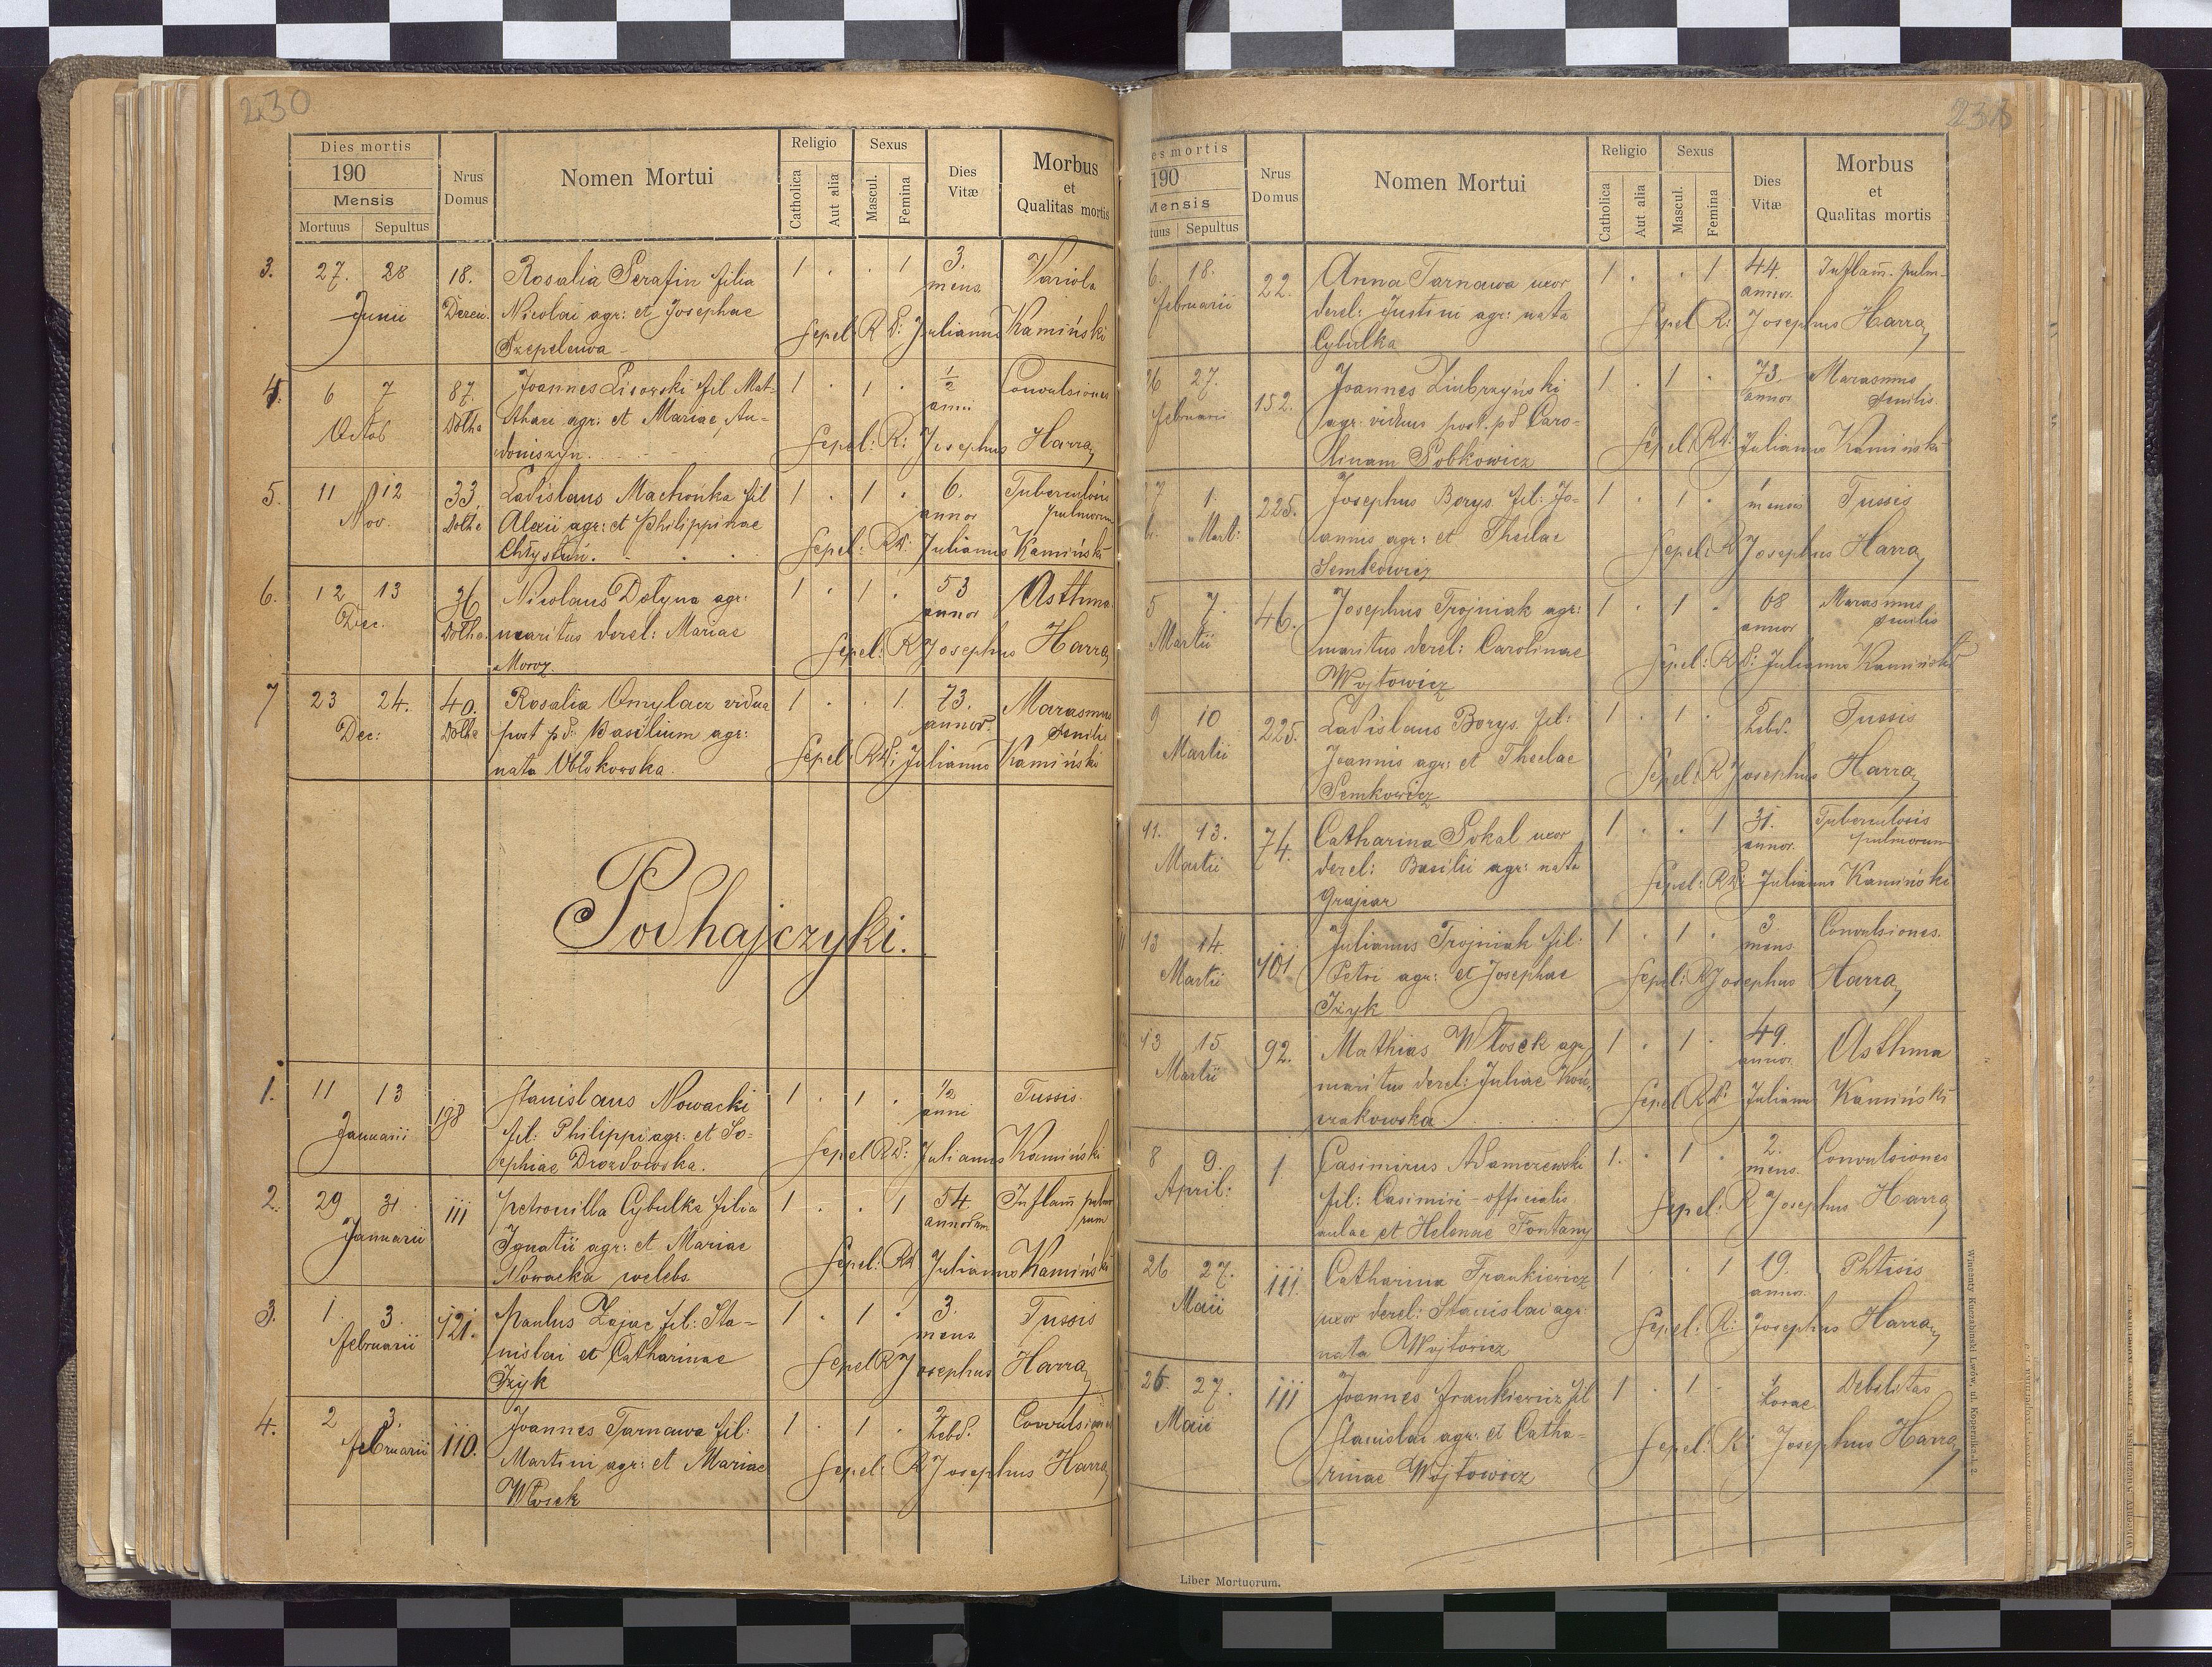 230
Dies mortis
190
Mensis
Mortuus Sepultus
Nrus Domus
Nomen Mortui
Religio
Catholica
Aut alia
Sexus
Mascul.
Femina
Dies Vitæ
Morbus et Qualitas mortis
3. 27. 28 18. Rosalia Serafin filia 1 . . 1 3. mens. Variola
Junii Nicolai agr: et Josephae Sepel: R d: Julianus Kamiński
4. 6 7 87. Joannes Lisowski fil Mat- 1 . 1 . ½ anni Convulsiones
Octob Dolha thaei agr: et Mariae, An- Sepel: R: Josephus Harra
doniszyn.
5. 11 12 33. Ladislaus Machonka fil 1 . 1 . 6. annor Tuberculosis pulmorum
Nov. Dolha Alexii agr: et Philippinae Sepel: Rd: Julianus Kamiński
Chrystun.
6. 12 13 36 Nicolaus Dolyna agr: 1 . 1 . 53 annor Asthma
Dec. Dolha. maritus derel: Mariae Sepel: R Josephus Harra
Moroz.
7 23 24. 40. Rosalia Omylacz vidua 1 . . 1. 73. annor. Marasmus senilis
Dec: Dolha post pd: Basilium agr: Sepel: Rd: Julianus Kamiński
nata Obłokowska.
Podhajczyki.
1. 11 13 198 Stanislaus Nowacki 1 . 1 . ½ anni Tussis.
Januarii fil: Philippi agr: et So- Sepel Rd: Julianus Kamiński
phiae Drozdowska.
2. 29 31 111 Petronilla Cybulka filia 1 . . 1 54 annorum Inflam pulmorum
Januarii Ignatii agr: et Mariae Sepel: Rd Julianus Kamiński
Nowacka coelebs
3. 1. 3. 121. Paulus Zając fil: Sta- 1 . 1 . 3. mens Tussis
februarii nislai et Catharinae Sepel R Josephus Harra
Izyk
4. 2 3. 110. Joannes Tarnawa fil: 1 . 1 . 2 hebd. Convulsiones
februarii Martini agr: et Mariae Sepel: R Josephus Harra
Włosek
es mortis
190
Mensis
tuus Sepultus
Nrus Domus
Nomen Mortui
Religio
Catholica
Aut alia
Sexus
Mascul.
Femina
Dies Vitæ
Morbus et Qualitas mortis
6. 18. 22. Anna Tarnawa uxor 1 . . 1 44. annor. Inflam. pulm-
februarii derel: Justini agr: nata Sepel R: Josephus Harra
Cybulka
26 27. 152. Joannes 1 . 1 . 73. annor Marasmus senilis.
februarii agr. viduus post. pd Caro- Sepel: Rd: Julianus Kamiński
linam Sobkowicz
27 1. 225. Josephus Borys fil: Jo- 1 . 1 . 1 mensis Tussis
Mart: annis agr: et Theclae Sepel: R Josephus Harra
Semkowicz
5 7. 46. Josephus Trojniak agr: 1 . 1 . 68 annor Marasmus senilis
Martii maritus derel: Carolinae Sepel: Rd: Julianus Kamiński
Wojtowicz
9 10 225. Ladislaus Borys fil: 1 . 1 . hebd. Tussis
Martii Joannis agr: et Theclae Sepel: R Josephus Harra
Semkowicz
11. 13. 74. Catharina Sokal uxor 1. . . 1 31. annor. Tuberculosis pulmorum
Martii derel: Basilii agr: nata Sepel: Rd: Julianus Kamiński
Grajcar
13 14. 101 Julianus Trojniak fil: 1 . 1 . 3 mens Convulsiones.
Martii Petri agr: et Josephae Sepel: R Josephus Harra
Izyk
13 15. 92. Mathias Włosek agr, 1 . 1 . 49. annor. Asthma
Martii maritus derel: Juliae Koń, Sepel Rd: Julianus Kamiński
czakowska
8 9. 1 Casimirus Adamczewski 1. . 1 . 2. mens. Convulsiones
April: fil: Casimiri - officialis Sepel: R Josephus Harra
aulae et Helenae Fontany
26 27. 111. Catharina Frankiewicz 1 . . 1 19. annor. Phtisis
Maii uxor derel: Stanislai agr: Sepel: R: Josephus Harra
nata Wojtowicz
26. 27. 111 Joannes Frankiewicz fil 1 . 1 . 1 horae Debilitas
Maii Stanislai agr: et Catha- Sepel: R: Josephus Harra
rinae Wojtowicz
Liber Mortuorum.